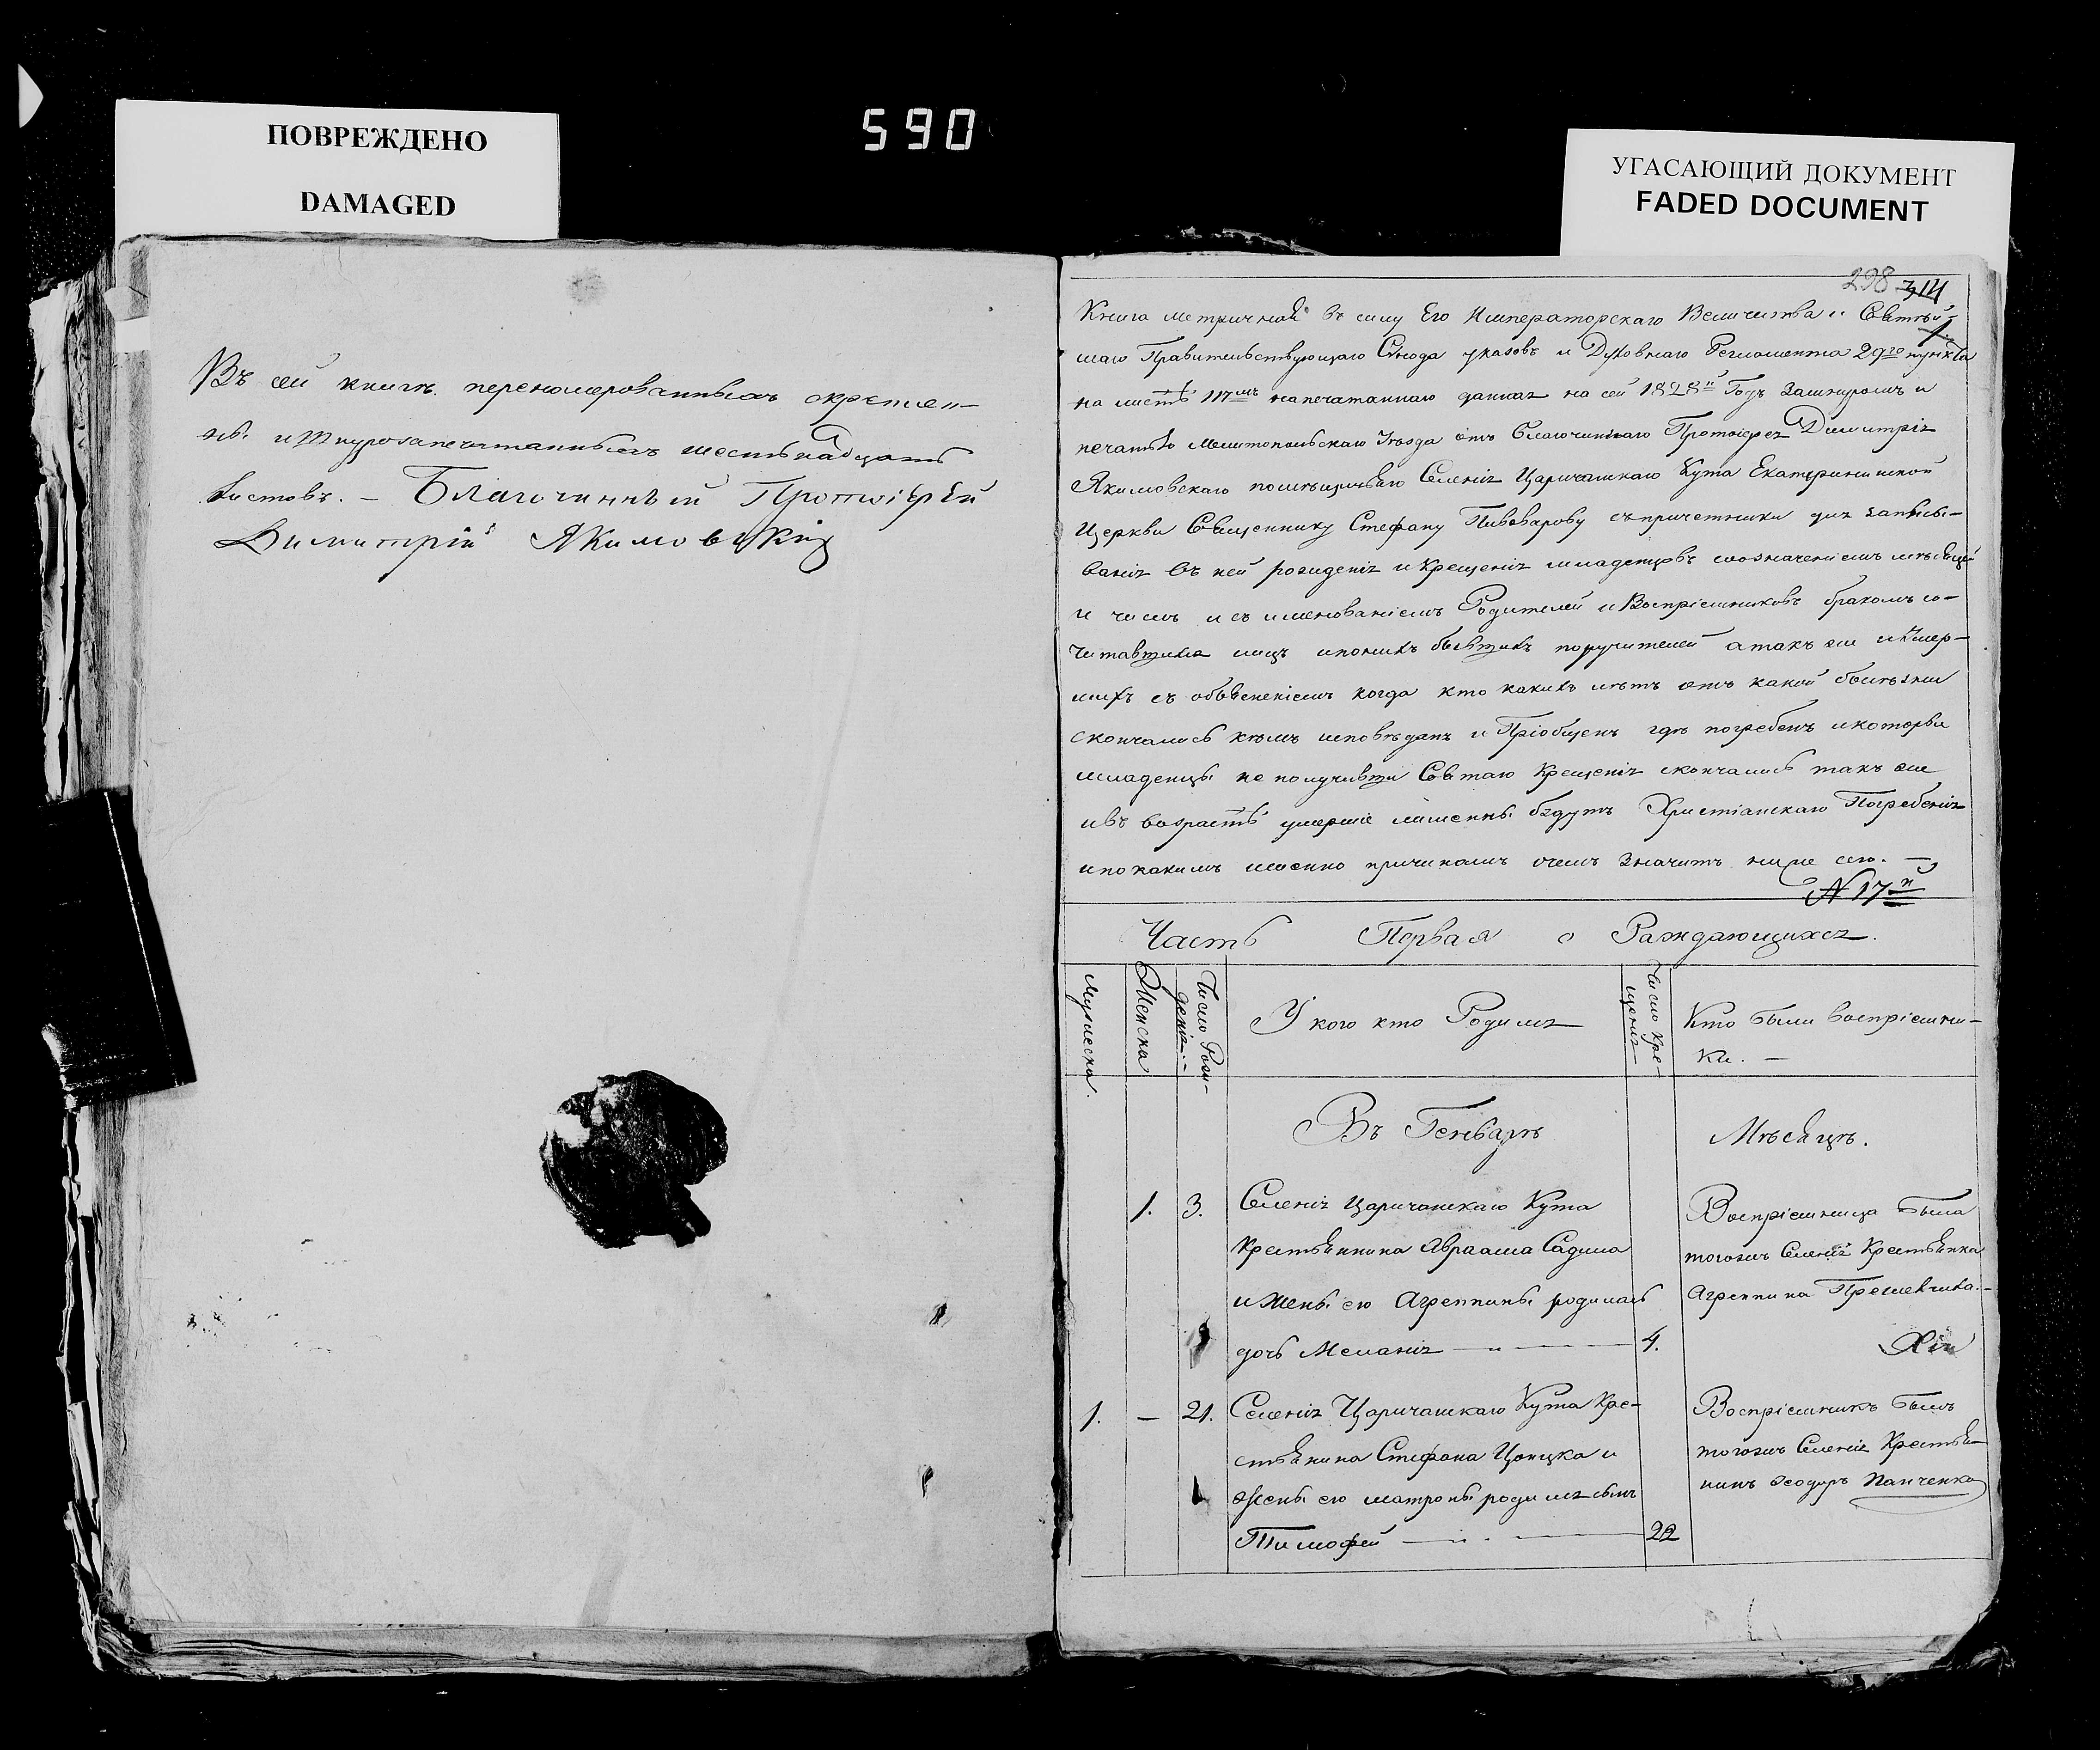 ПОВРЕЖДЕНО
DAMAGED
590
УГАСАЮЩИЙ ДОКУМЕНТ
FADED DOCUMENT
Въ сей книгѣ переномерованныхъ скрѣплен-
ны и шнурозапечатанныхъ шестьнадцать
листовъ. – Благочинный Протоіерей
Димитрій Якимовскій
298 314
Книга метричная въ силу Его Императорскаго Величества и Святѣй-
1.
шаго Правительствующаго Сунода указовъ и Духовнаго Регламента 29го пункта
на листѣ 117мъ напечатаннаго данная на сей 1828й Годъ зашнуромъ и
печатью Мелитопольскаго Уѣзда отъ благочиннаго Протоіерея Димитрія
Якимовскаго помѣщичьяго Селенія Царичанскаго Кута Екатерининской
Церкви Священнику Стефану Пивоварову съпричетники для записы-
ванія въ ней рожденія и крещенія младенцовъ соозначеніемъ мѣсяцей
и числъ и съ именованіемъ Родителей и Воспріемниковъ бракомъ со-
читавшихся лицъ ипонихъ бывшихъ поручителей атакъ же и Умер-
шихъ съ объясненіемъ когда кто какихъ лѣтъ отъ какой болѣзни
скончались кѣмъ исповѣданъ и Пріобщенъ гдѣ погребенъ икоторыи
младенцы не получивши Святаго Крещенія скончались такъ же
ивъ возрастѣ умершіе лишенны будутъ Христіанскаго Погребенія
ипо какимъ именно причинамъ очемъ значитъ ниже сего. –
N 17й
Часть Первая о Раждающихся.
Мужеска.
Женска
Число Рож-
денія. –
У кого кто Родился
Число Кре-
щенія
Кто были воспріемни-
ки. –
Въ Генварѣ Мѣсяцѣ.
1. 3. Селенія Царичанскаго Кута
Крестьянина Авраама Садила
и жены его Агрепины родилась
дочь Меланія 4.
Воспріемница была
тогожъ Селенія Крестьянка
Агрепина
1. – 21. Селенія Царичанскаго Кута Кре-
стьянина Стефана Цоицка и
Жены его матроны родился сынъ
Тимофей 22
Воспріемникъ былъ
тогожъ Селенія Крестья-
нинъ Ѳеодоръ Панченко